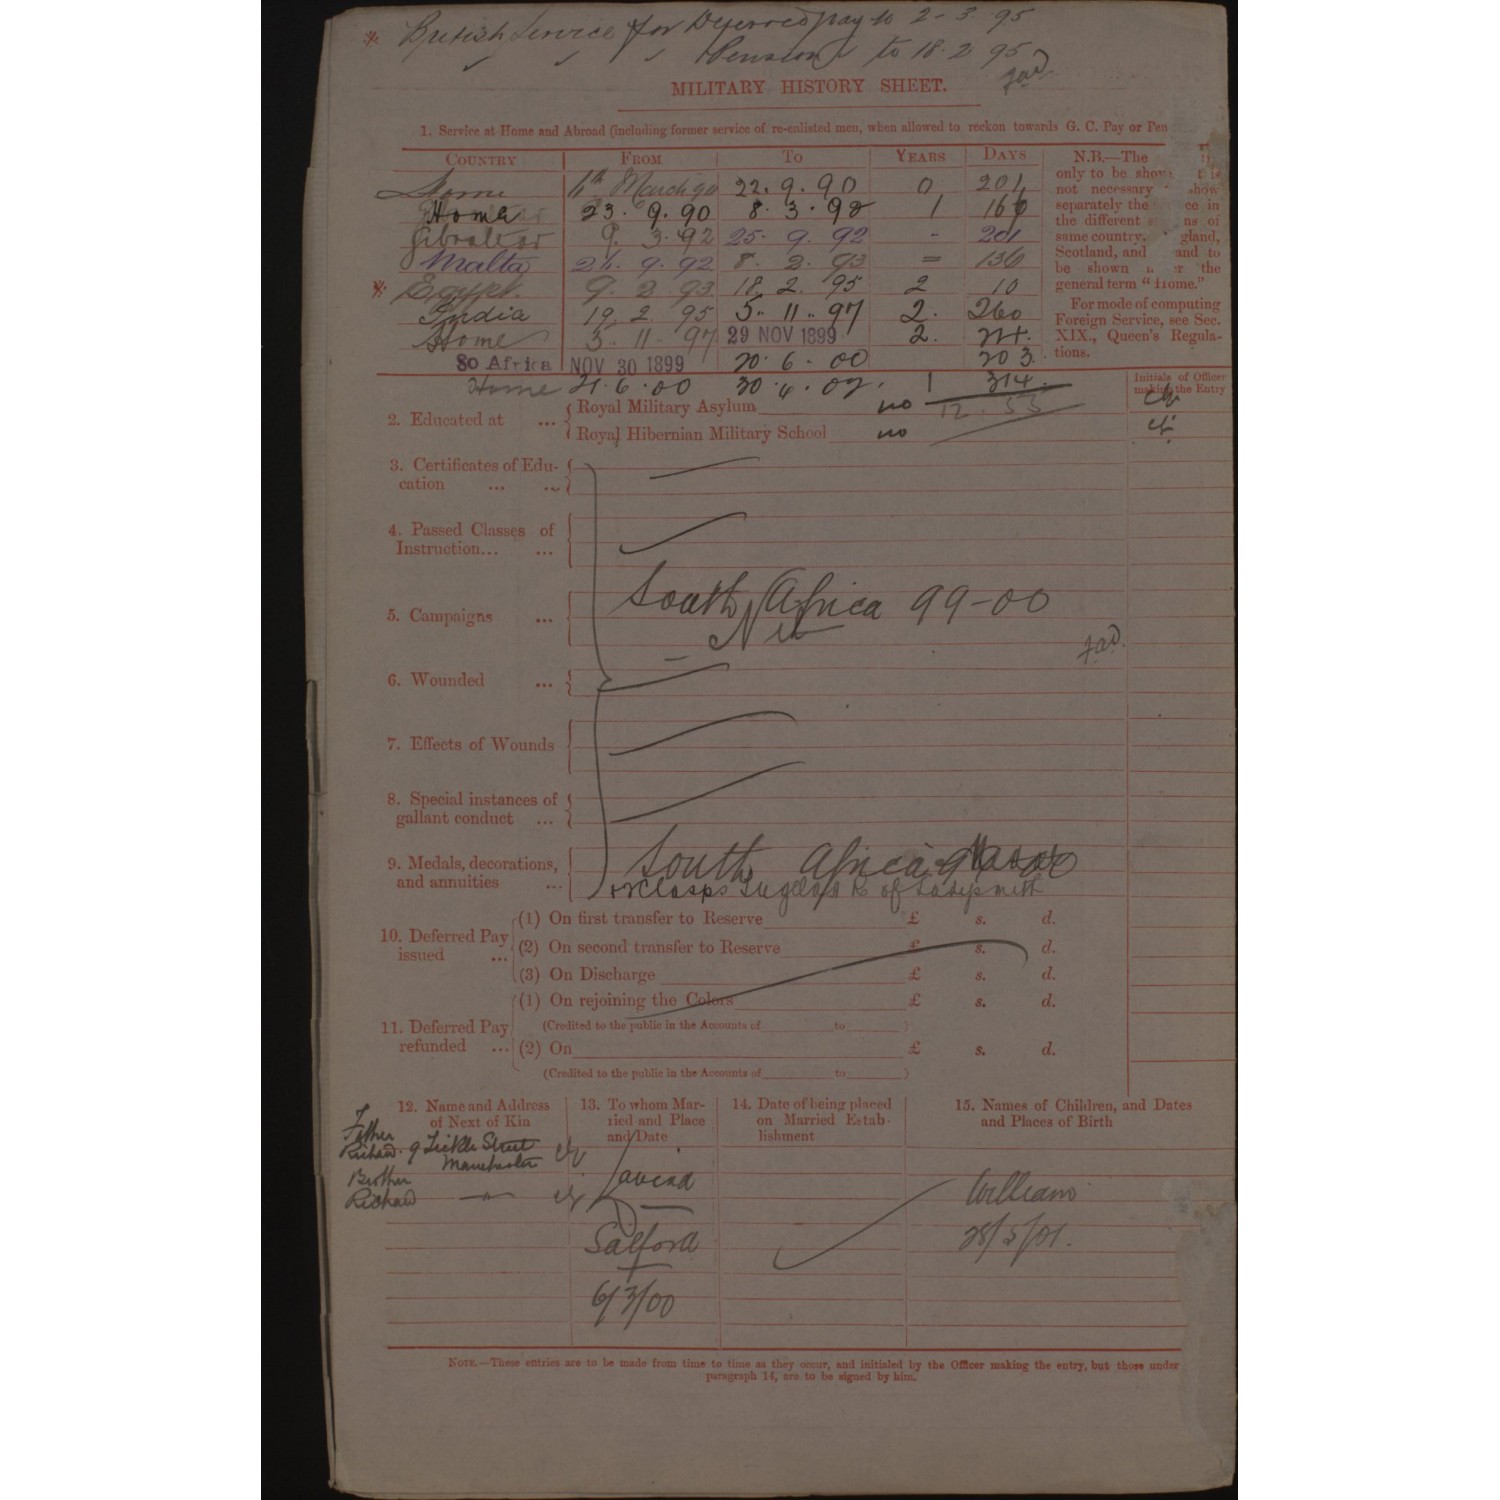 * British Service for Deferred pay to 2-3-95
Pension to 18.2.95
MILITARY HISTORY SHEET.
1. Service at Home and Abroad (including former service of re-enlisted men, when allowed to reckon towards G. C. Pay or Pen
COUNTRY FROM TO YEARS DAYS
Home March 90 22.9.90 0 201
Home 23.9.90 8.3.92 1
Gibraltar 9.3.92 25.9.92 - 201
Malta 26.9.92 8.2.93 = 136
* Egypt. 9.2.93 18.2.95 2 10
India 19.2.95 5.11.97 2. 260
Home 11.97 29 NOV 1899 2.
So Africa NOV 30 1899 20.6.00 203.
Home 21.6.00 30.4.02. 1 314
N.B.—The
only to be shown
not necessary show
separately the ce in
the different ns of
same country. gland,
Scotland, and and to
be shown the
general term "Home."
For mode of computing
Foreign Service, see Sec.
XIX., Queen's Regula-
tions.
Initials of Officer
making the Entry
2. Educated at ... Royal Military Asylum no 12. 53
Royal Hibernian Military School no
3. Certificates of Edu-
cation ... ...
4. Passed Classes of
Instruction... ...
5. Campaigns ... South Africa 99-00
Nil
6. Wounded ...
7. Effects of Wounds
8. Special instances of
gallant conduct ...
9. Medals, decorations,
and annuities ... South Africa
Clasps Tugela R of Ladysmith
10. Deferred Pay
issued ...
(1) On first transfer to Reserve £ s. d.
(2) On second transfer to Reserve £ s. d.
(3) On Discharge £ s. d.
11. Deferred Pay
refunded ...
(1) On rejoining the Colors £ s. d.
(Credited to the public in the Accounts of to )
(2) On £ s. d.
(Credited to the public in the Accounts of to )
12. Name and Address
of Next of Kin
13. To whom Mar-
ried and Place
and Date
14. Date of being placed
on Married Estab-
lishment
15. Names of Children, and Dates
and Places of Birth
Father
Richard 9 Tickle Street
Manchester
Brother
Richard — " —
Lavina
Salford
6/3/00
William
28/5/01.
NOTE.—These entries are to be made from time to time as they occur, and initialed by the Officer making the entry, but those under
paragraph 14, are to be signed by him.